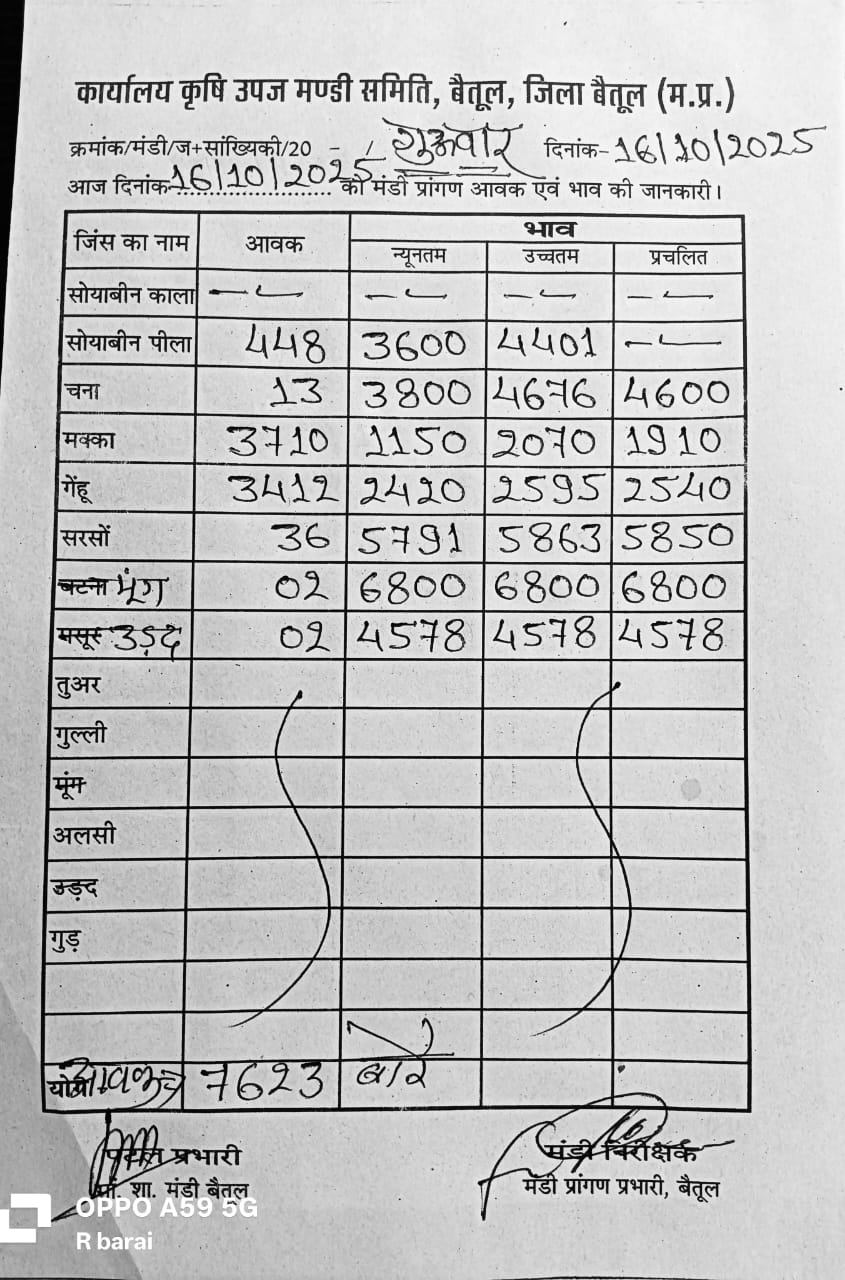 कार्यालय कृषि उपज मण्डी समिति, बैतूल, जिला बैतूल (म.प्र.)
क्रमांक/मंडी/ज+सांख्यिकी/20 - / गुरूवार दिनांक-16/10/2025
आज दिनांक 16/10/2025 को मंडी प्रांगण आवक एवं भाव की जानकारी।
जिंस का नाम आवक भाव
न्यूनतम उच्चतम प्रचलित
सोयाबीन काला -- -- -- --
सोयाबीन पीला 448 3600 4401 --
चना 13 3800 4676 4600
मक्का 3710 1150 2070 1910
गेंहू 3412 2420 2595 2540
सरसों 36 5791 5863 5850
बटना मूंग 02 6800 6800 6800
मसूर उड़द 02 4578 4578 4578
तुअर
गुल्ली
मूंग
अलसी
उड़द
गुड़
योग आवक 7623 बोरे
प्रभारी मंडी निरीक्षक
शा. मंडी बैतूल मंडी प्रांगण प्रभारी, बैतूल
OPPO A59 5G
R barai